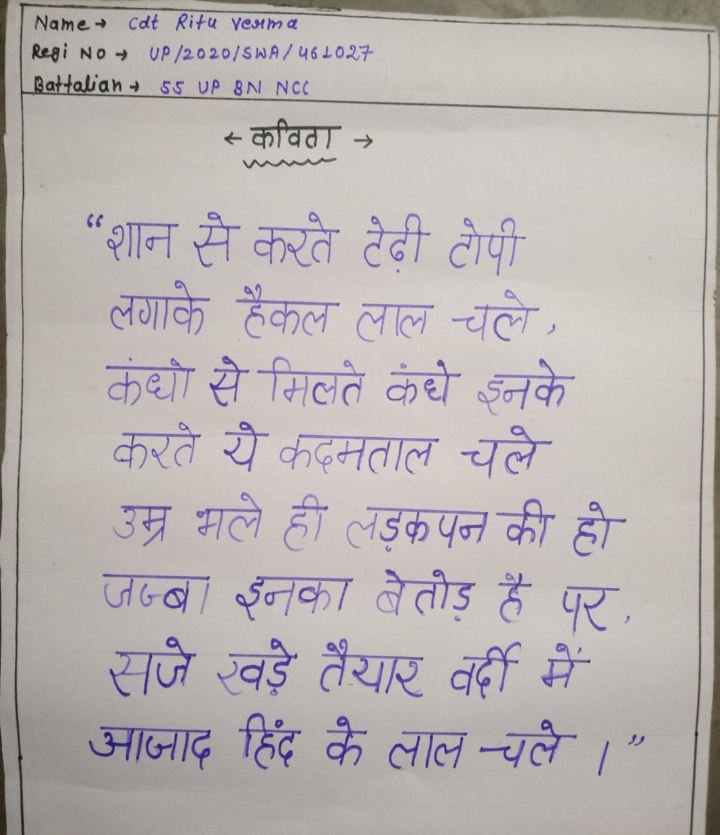 Name → Cdt Ritu Verma
Regi No → UP/2020/SWA/461027
Battalian → 55 UP BN NCC
← कविता →
“शान से करते टेढ़ी टोपी
लगाके हैकल लाल चले,
कंधो से मिलते कंधे इनके
करते ये कदमताल चले
उम्र भले ही लड़कपन की हो
जज्बा इनका बेतोड़ है पर,
सजे खड़े तैयार वर्दी में
आजाद हिंद के लाल चले ।”